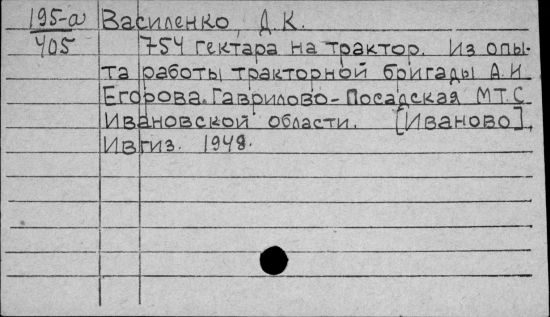 195-а Василенко, Д.К.
405 754 гектара на трактор. Из опы-
та работы тракторной бригады А.И.
Егорова. Гаврилово-Посадская МТС
Ивановской области. [Иваново],
Ивгиз. 1948.